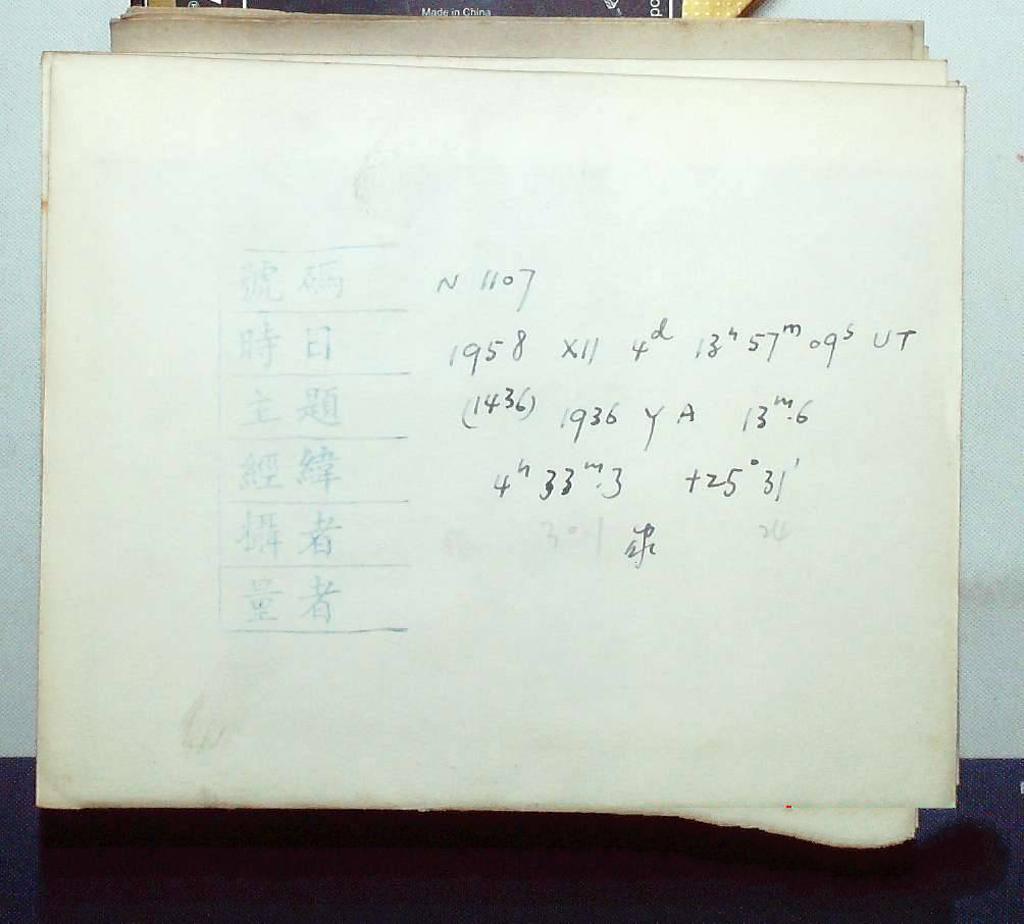 Made in China
號碼 N 1107
時日 1958 XII 4ᵈ 13ʰ 57ᵐ 09ˢ UT
主題 (1436) 1936 Y A 13ᵐ.6
經緯 4ʰ 33ᵐ.3 +25° 31'
攝者
量者